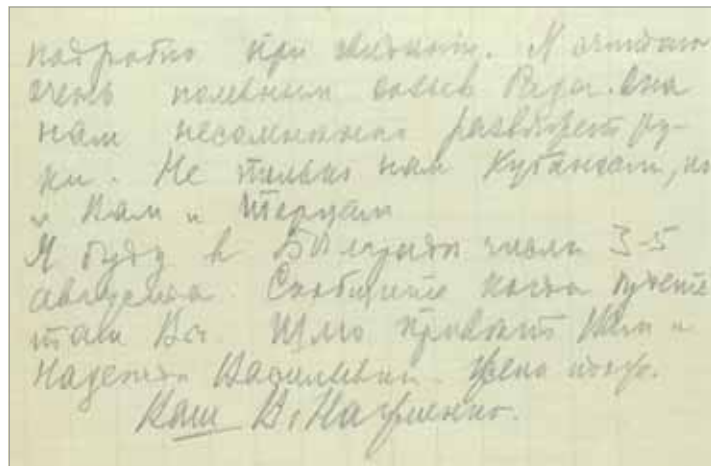 подробно при свидании. Я считаю
очень полезным созыв Рады. Она
нам несомненно развяжет ру-
ки. Не только нам Кубанцам, но
и Вам и Терцам
Я буду в Белграде числа 3-5
августа. Сообщите когда будете
там Вы. Шлю привет Вам и
Надежде Васильевне. Жена тоже.
Ваш В. Науменко.